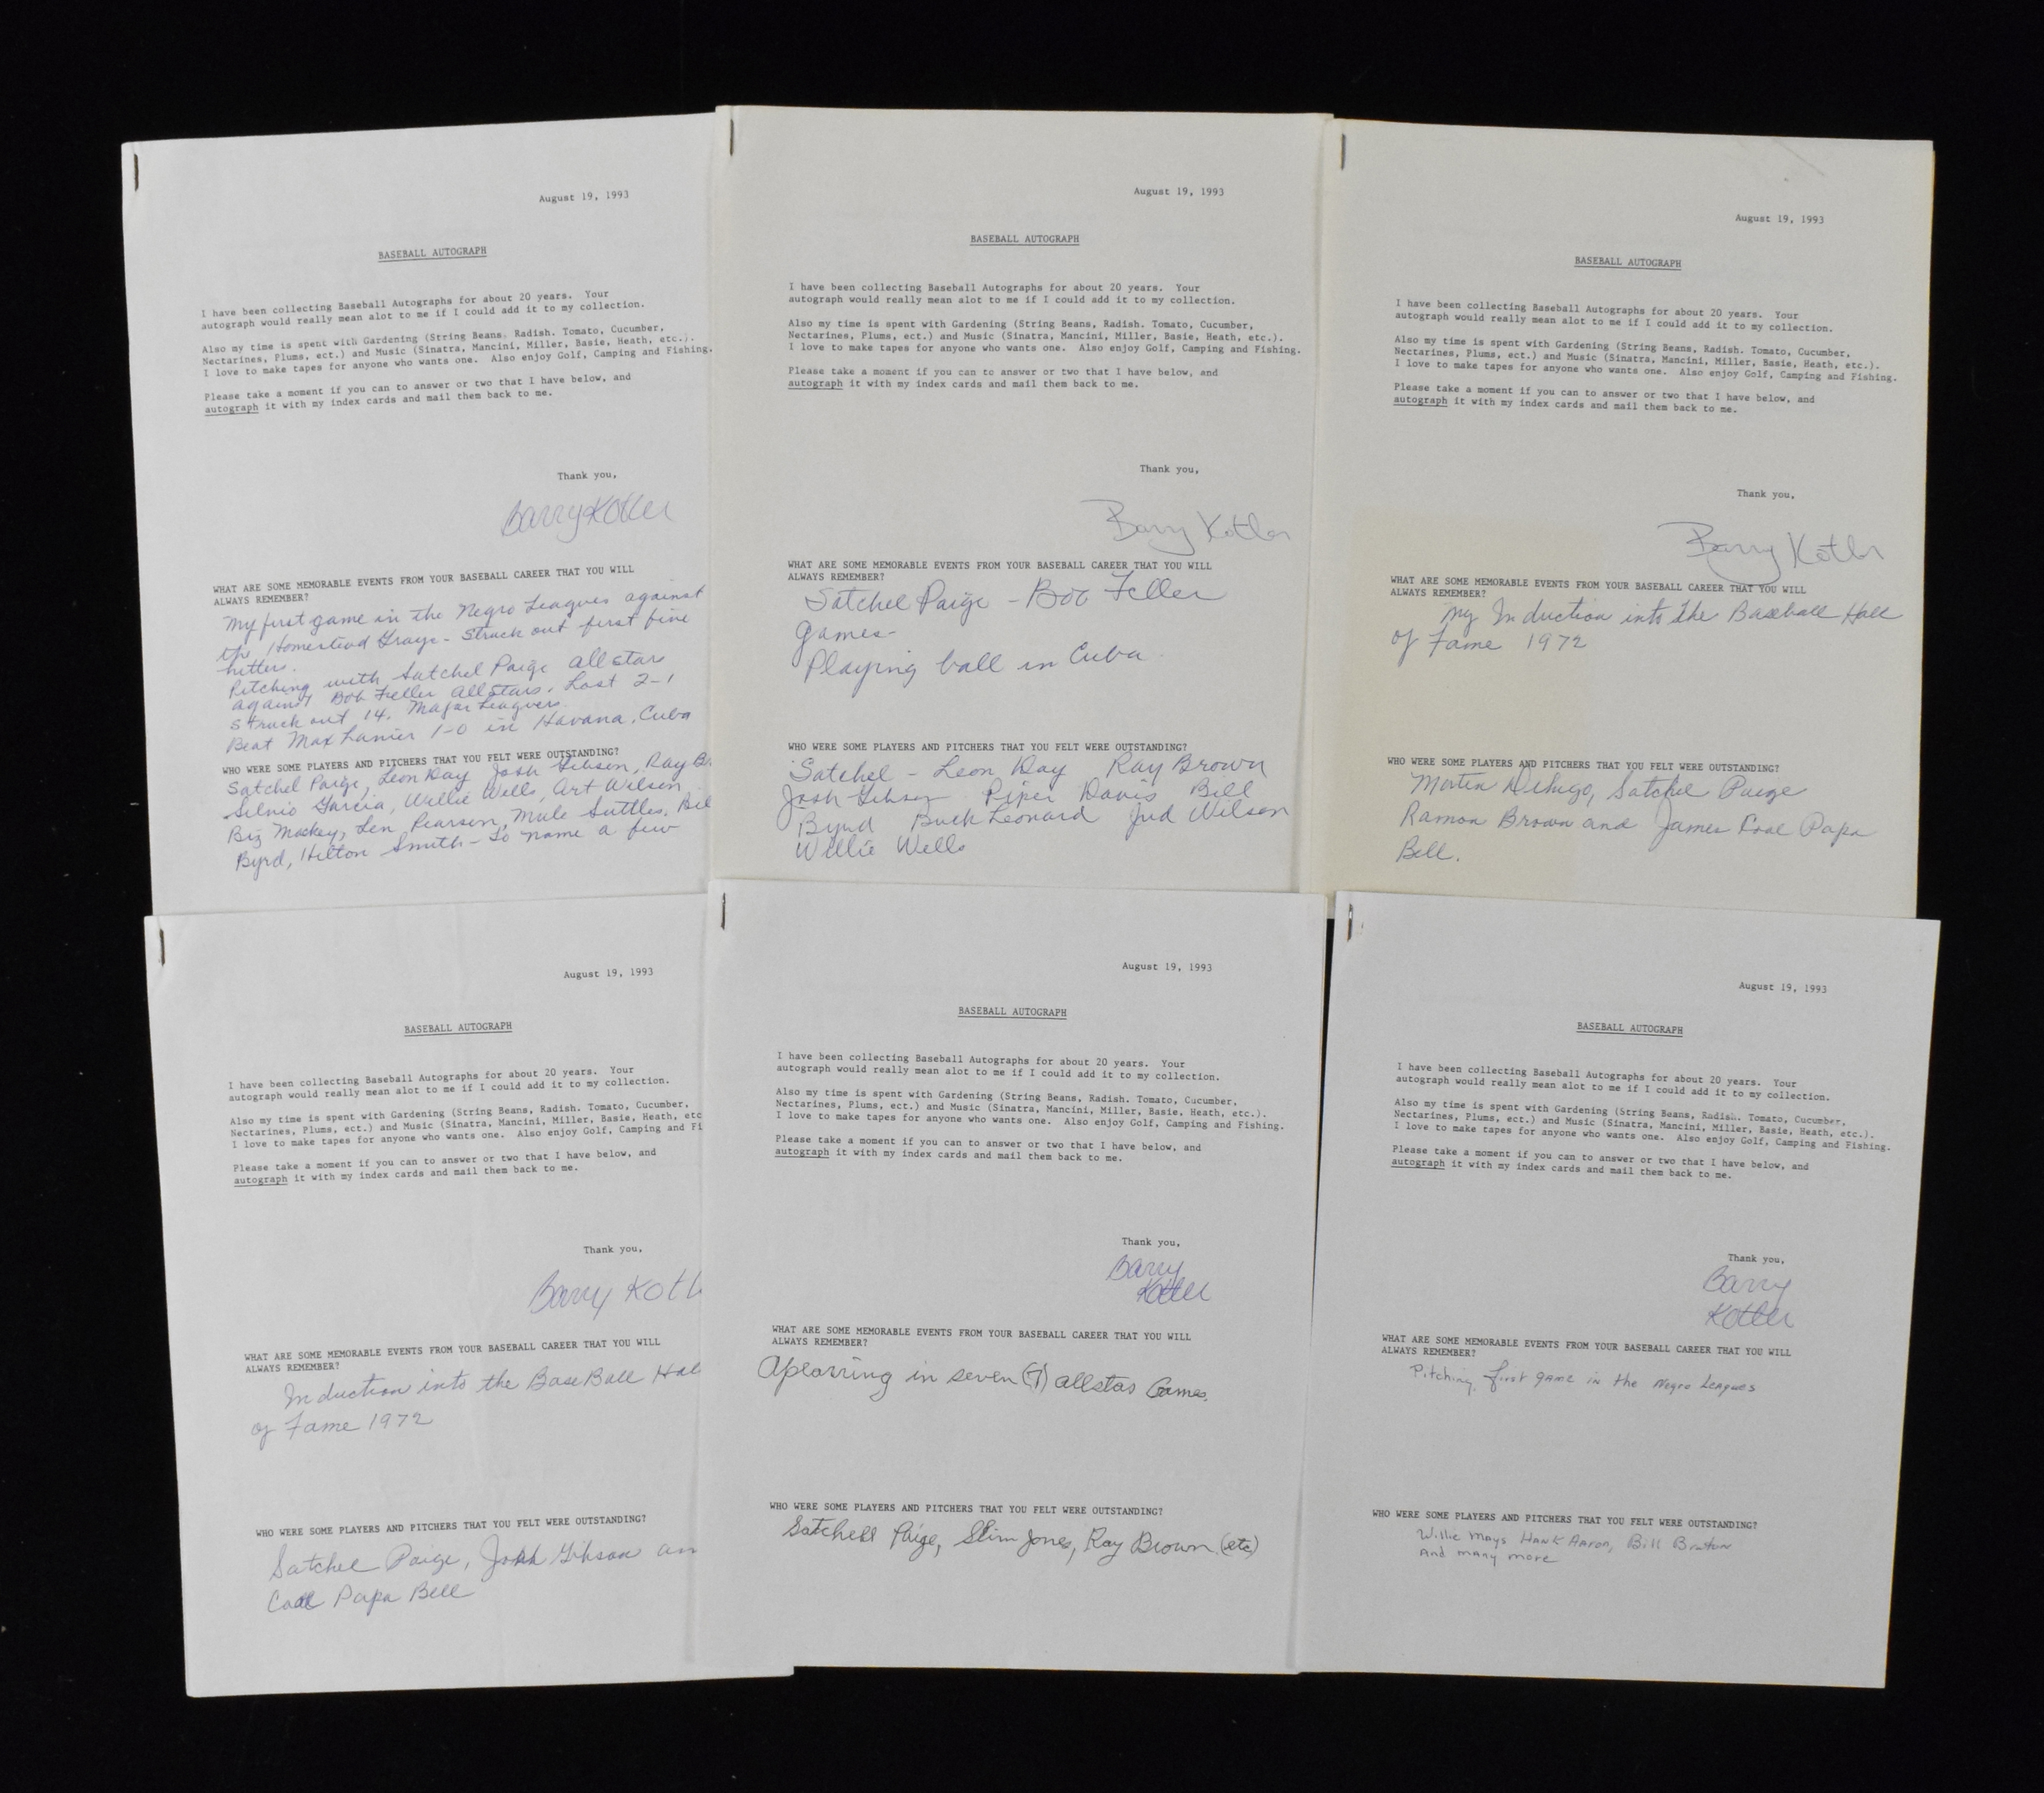 August 19, 1993
BASEBALL AUTOGRAPH
I have been collecting Baseball Autographs for about 20 years. Your
autograph would really mean alot to me if I could add it to my collection.
Also my time is spent with Gardening (String Beans, Radish. Tomato, Cucumber,
Nectarines, Plums, ect.) and Music (Sinatra, Mancini, Miller, Basie, Heath, etc.).
I love to make tapes for anyone who wants one. Also enjoy Golf, Camping and Fishing.
Please take a moment if you can to answer or two that I have below, and
autograph it with my index cards and mail them back to me.
Thank you,
Barry Kotler
WHAT ARE SOME MEMORABLE EVENTS FROM YOUR BASEBALL CAREER THAT YOU WILL
ALWAYS REMEMBER?
My first game in the Negro Leagues against
the Homestead Grays - Struck out first five
hitters.
Pitching with Satchel Paige all stars
against Bob Feller all stars. Lost 2-1
Struck out 14. Major Leaguers
Beat Max Lanier 1-0 in Havana, Cuba
WHO WERE SOME PLAYERS AND PITCHERS THAT YOU FELT WERE OUTSTANDING?
Satchel Paige, Leon Day Josh Gibson, Ray B
Silvio Garcia, Willie Wells, Art Wilson
Biz Mackey, Len Pearson, Mule Suttles, Bil
Byrd, Hilton Smith - to name a few
August 19, 1993
BASEBALL AUTOGRAPH
I have been collecting Baseball Autographs for about 20 years. Your
autograph would really mean alot to me if I could add it to my collection.
Also my time is spent with Gardening (String Beans, Radish. Tomato, Cucumber,
Nectarines, Plums, ect.) and Music (Sinatra, Mancini, Miller, Basie, Heath, etc.).
I love to make tapes for anyone who wants one. Also enjoy Golf, Camping and Fishing.
Please take a moment if you can to answer or two that I have below, and
autograph it with my index cards and mail them back to me.
Thank you,
Barry Kotler
WHAT ARE SOME MEMORABLE EVENTS FROM YOUR BASEBALL CAREER THAT YOU WILL
ALWAYS REMEMBER?
Satchel Paige - Bob Feller
games-
Playing ball in Cuba
WHO WERE SOME PLAYERS AND PITCHERS THAT YOU FELT WERE OUTSTANDING?
Satchel - Leon Day Ray Brown
Josh Gibson Piper Davis Bill
Byrd Buck Leonard Jud Wilson
Willie Wells
August 19, 1993
BASEBALL AUTOGRAPH
I have been collecting Baseball Autographs for about 20 years. Your
autograph would really mean alot to me if I could add it to my collection.
Also my time is spent with Gardening (String Beans, Radish. Tomato, Cucumber,
Nectarines, Plums, ect.) and Music (Sinatra, Mancini, Miller, Basie, Heath, etc.).
I love to make tapes for anyone who wants one. Also enjoy Golf, Camping and Fishing.
Please take a moment if you can to answer or two that I have below, and
autograph it with my index cards and mail them back to me.
Thank you,
Barry Kotler
WHAT ARE SOME MEMORABLE EVENTS FROM YOUR BASEBALL CAREER THAT YOU WILL
ALWAYS REMEMBER?
My Induction into the Baseball Hall
of Fame 1972
WHO WERE SOME PLAYERS AND PITCHERS THAT YOU FELT WERE OUTSTANDING?
Martin Dihigo, Satchel Paige
Ramon Brown and James Cool Papa
Bell.
August 19, 1993
BASEBALL AUTOGRAPH
I have been collecting Baseball Autographs for about 20 years. Your
autograph would really mean alot to me if I could add it to my collection.
Also my time is spent with Gardening (String Beans, Radish. Tomato, Cucumber,
Nectarines, Plums, ect.) and Music (Sinatra, Mancini, Miller, Basie, Heath, etc
I love to make tapes for anyone who wants one. Also enjoy Golf, Camping and Fi
Please take a moment if you can to answer or two that I have below, and
autograph it with my index cards and mail them back to me.
Thank you,
Barry Kotl
WHAT ARE SOME MEMORABLE EVENTS FROM YOUR BASEBALL CAREER THAT YOU WILL
ALWAYS REMEMBER?
Induction into the BaseBall Hal
of Fame 1972
WHO WERE SOME PLAYERS AND PITCHERS THAT YOU FELT WERE OUTSTANDING?
Satchel Paige, Josh Gibson an
Cool Papa Bell
August 19, 1993
BASEBALL AUTOGRAPH
I have been collecting Baseball Autographs for about 20 years. Your
autograph would really mean alot to me if I could add it to my collection.
Also my time is spent with Gardening (String Beans, Radish. Tomato, Cucumber,
Nectarines, Plums, ect.) and Music (Sinatra, Mancini, Miller, Basie, Heath, etc.).
I love to make tapes for anyone who wants one. Also enjoy Golf, Camping and Fishing.
Please take a moment if you can to answer or two that I have below, and
autograph it with my index cards and mail them back to me.
Thank you,
Barry
Kotler
WHAT ARE SOME MEMORABLE EVENTS FROM YOUR BASEBALL CAREER THAT YOU WILL
ALWAYS REMEMBER?
Apearring in seven (7) allstar Games.
WHO WERE SOME PLAYERS AND PITCHERS THAT YOU FELT WERE OUTSTANDING?
Satchell Paige, Slim Jones, Ray Brown (etc)
August 19, 1993
BASEBALL AUTOGRAPH
I have been collecting Baseball Autographs for about 20 years. Your
autograph would really mean alot to me if I could add it to my collection.
Also my time is spent with Gardening (String Beans, Radish. Tomato, Cucumber,
Nectarines, Plums, ect.) and Music (Sinatra, Mancini, Miller, Basie, Heath, etc.).
I love to make tapes for anyone who wants one. Also enjoy Golf, Camping and Fishing.
Please take a moment if you can to answer or two that I have below, and
autograph it with my index cards and mail them back to me.
Thank you,
Barry
Kotler
WHAT ARE SOME MEMORABLE EVENTS FROM YOUR BASEBALL CAREER THAT YOU WILL
ALWAYS REMEMBER?
Pitching first game in the Negro Leagues
WHO WERE SOME PLAYERS AND PITCHERS THAT YOU FELT WERE OUTSTANDING?
Willie Mays Hank Aaron, Bill Bruton
and many more